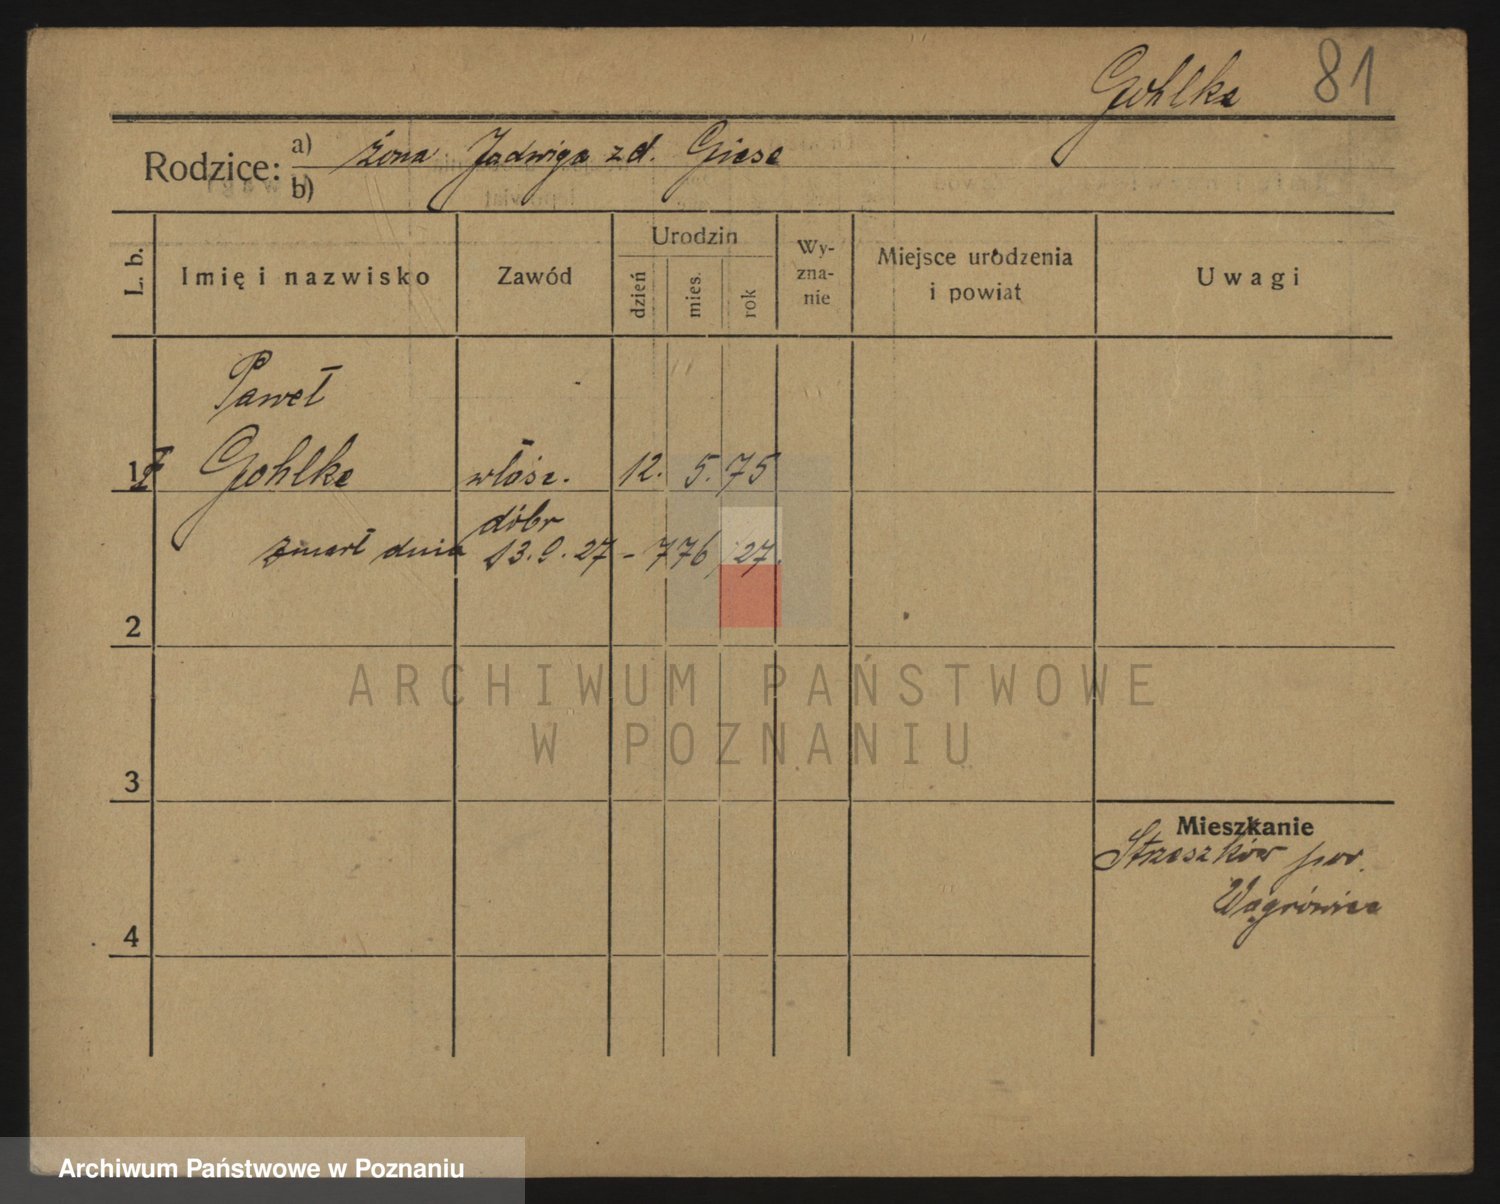 Gohlke 81
Rodzice: a) żona Jadwiga zd. Giese
b)
L. b. Imię i nazwisko Zawód Urodzin dzień mies. rok Wy-zna-nie Miejsce urodzenia i powiat Uwagi
Paweł
1 Gohlke właśc. 12. 5. 75
dóbr
zmarł dnia 13.9.27 - 776/27.
2
ARCHIWUM PAŃSTWOWE
W POZNANIU
3
Mieszkanie
Strzeszków pow.
Wągrówiec
4
Archiwum Państwowe w Poznaniu